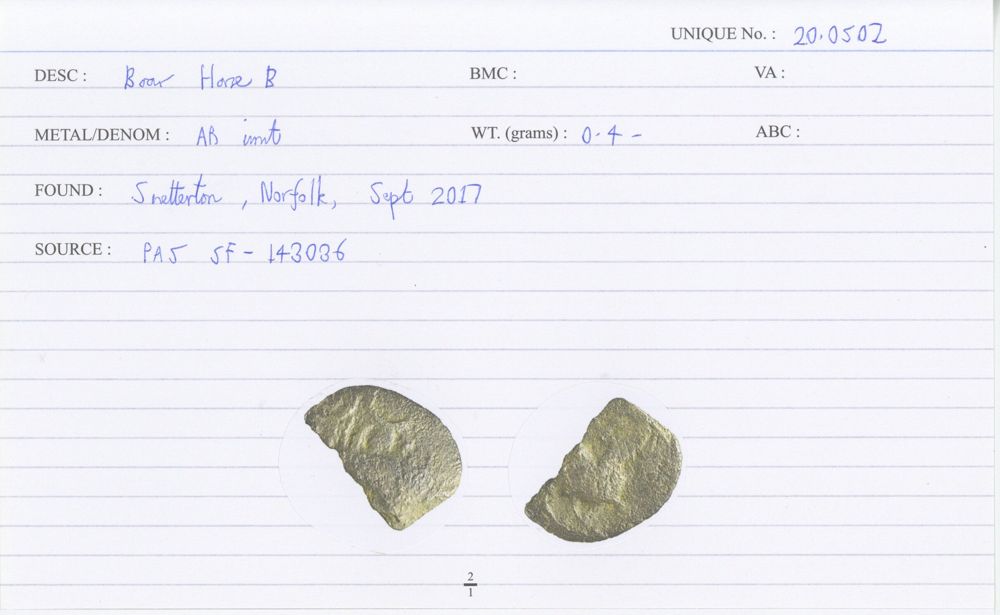 UNIQUE No. : 20.0502
DESC : Boar Horse B BMC : VA :
METAL/DENOM : AR unit WT. (grams) : 0.4 - ABC :
FOUND : Snetterton, Norfolk, Sept 2017
SOURCE : PAS SF - 143036
2
1